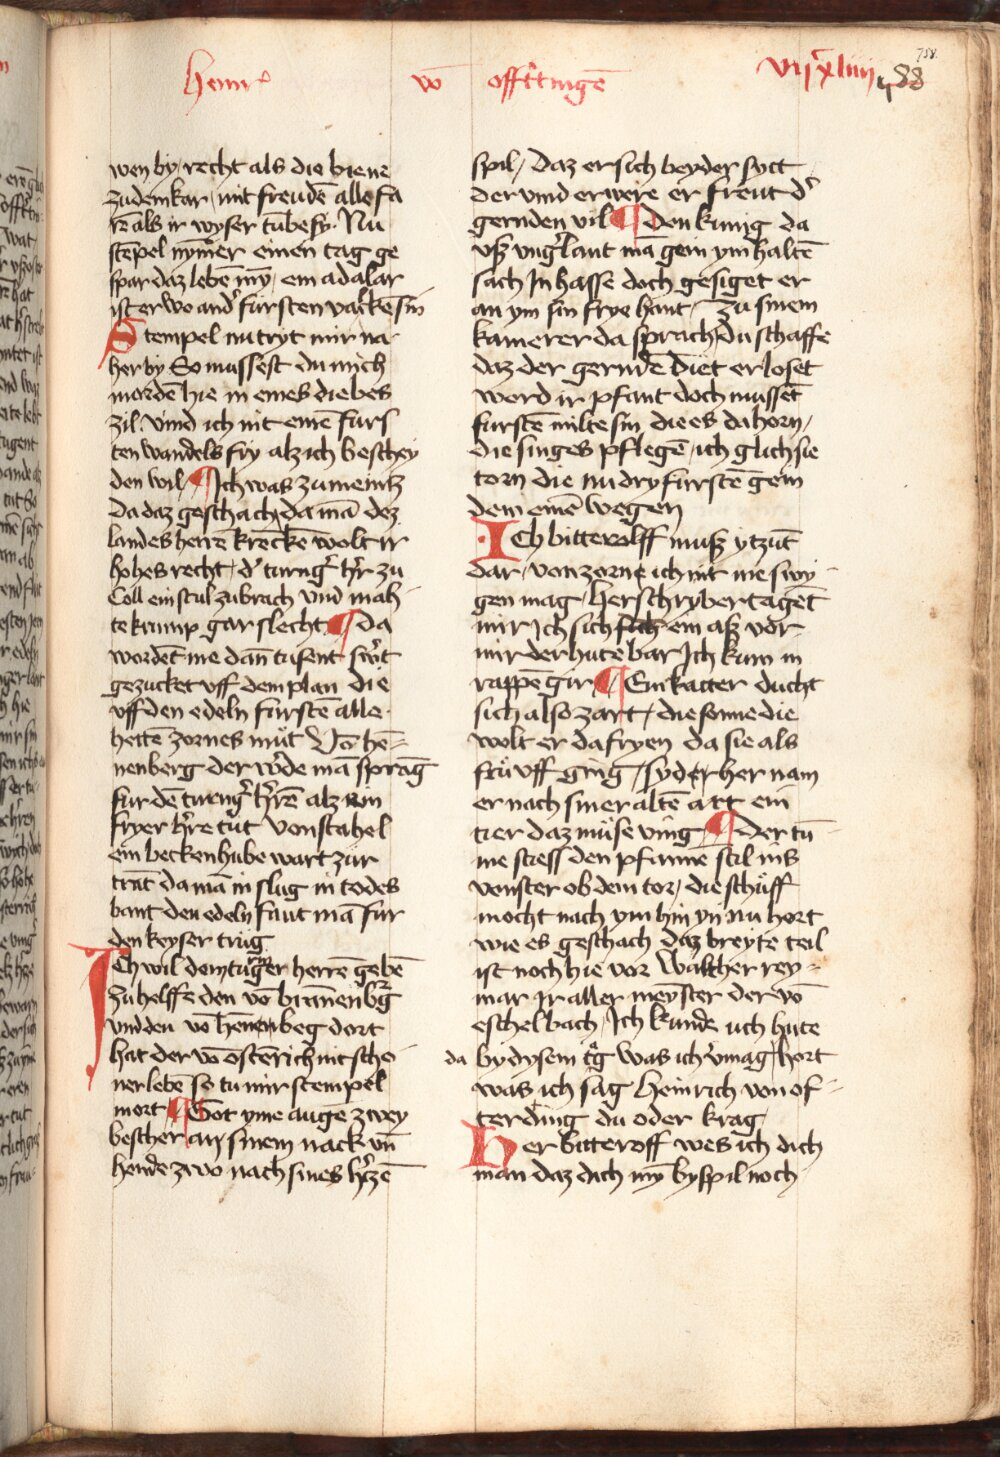 Heinr̄ vō offtˀtingē vijᶜxliiij 758
788
wen by / recht als die biene
zu dem kar / mit freudē alle fa
rē als ir wyser tūbe fy · Nu
stēpel nym̄er einen tag ge
spar daz lebē my̅ / ein adalar
ist er wo andˀ fursten valckē sin
Stempel nu tryt mir na
her by So mussest du mich
mordē hie in eines diebes
zil · vind ich nit einē furs
ten wandels fry alz ich beschey
den wil / ¶ Ich was zu meintz
da daz geschach / da mā dez
landes herrē krēckē wolt ir
hohes recht / dˀ turngˀ hˀr zu
Coll ein stul zubrach vnd mah
te krump gar slecht ¶ Da
wordēt me dan̄ tusent swˀt
gezucket vff dem plan die
vff den edeln furstē alle
hettē zornes mut Vō hē=
nenberg der wˀde mā sprāg
fur dē turngˀ hˀrē alz ein
fryer hˀre tut von stahel
ein beckenhube wart zur
trāt da mā in slug in todes
bant den edeln faut mā fur
den keyser trug
Ich wil dem turger herrē gebē
zu helffe den vō brān̄enbˀg
vnd den vō hēnenbeg dort
hat der vō ostērich nit scho
ner lebē so tu mir stempel
mort ¶ Got yme augē zwey
bescher an sinem nack vn̄
hende zwo nach sines hˀzē
spil / daz er sich beyder sytt
der vind erwere er freut dˀ
gernden vil ¶ Den kunig da
vß vngˀlant mā gein ym haltē
sach In hasse doch gesiget er
an ym sin frye hant / zu sinem
kamerer da sprach / du schaffe
daz der gernde diet erloset
werd ir pfant doch mussēt
furstē milte sin die es da horn /
die singes pflegē / ich glich sie
torn die nu dry furstē gein
dem einē wegen
Ich bitterolff muß ytzūt
dar / von zorne ich nit me swy
gen mag / Her schryber tagēt
mir ich sich sich ein aß vor
mir der hute bar Ich kum in
rappē gir ¶ Ein katter ducht
sich also zart / die sonne die
wolt er da fryen da sie als
fru vff ging / syder her nam
er nach siner altē art ein
tier daz muse ving ¶ Der tū
me stiess den pfannē stil ins
venster ob dem tor / die schuff
mocht nach ym hin yn nu hort
wie es geschach daz breyte teil
ist noch hie vor Walther rey=
mar ir aller meyster der vō
eschelbach / Ich kunde uch hute
da by dysem tˀg was ich vˀmag / hort
was ich sag Heinrich von of=
terding du oder krag
Her bitteroff wes ich dich
man daz dich my̅ byspil noch